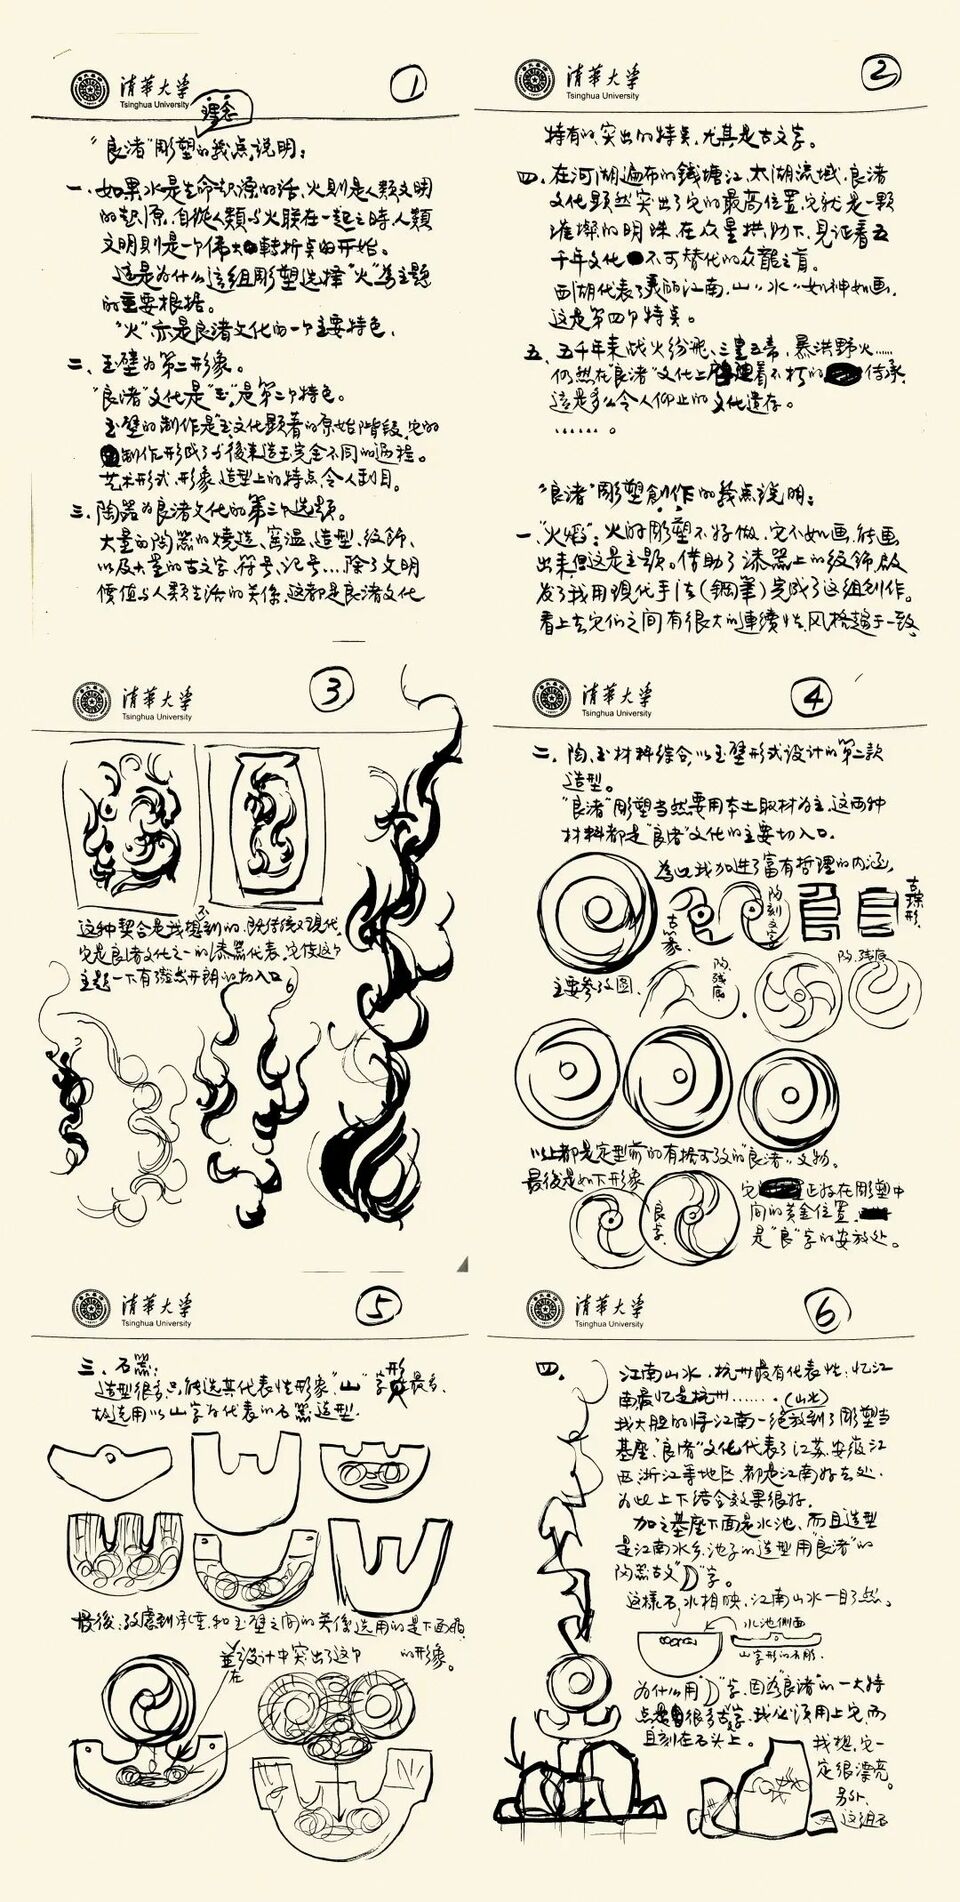 清華大學
Tsinghua University
1
理念
"良渚"彫塑的幾点説明：
一、如果水是生命起源的話，火則是人類文明
的起源，自從人類与火联在一起之時，人類
文明則是一个偉大的轉折点的开始。
這是為什么這組彫塑选擇"火"為主題
的重要根据。
"火"亦是良渚文化的一个主要特色、
二、玉璧为第二形象。
"良渚"文化是"玉"是第二个特色。
玉璧的制作是玉文化顯著的原始階段，它的
制作形成了与後来造玉完全不同的过程。
艺术形式、形象、造型上的特点令人刮目。
三、陶器为良渚文化的第三个选题。
大量的陶器的燒造、窑温、造型、紋飾、
以及大量的古文字、符号、记号...除了文明
價值与人類生活的关係，这都是良渚文化
清華大學
Tsinghua University
2
特有的、突出的特点，尤其是古文字。
四、在河湖遍布的錢塘江、太湖流域，良渚
文化顯然突出了它的最高位置，它就是一顆
璀璨的明珠，在众星拱助下，見证着五
千年文化不可替代的众龍之首。
西湖代表了美丽江南，山"水"如神如画，
這是第四个特点。
五、五千年来战火纷飛、三皇五帝，暴洪野火……
仍然在"良渚"文化上 着不朽的 传承，
這是多么令人仰止的文化遗存。
……。
"良渚"彫塑創作的幾点説明：
一、"火焰"：火的彫塑不好做，它不如画，能画
出来但这是主题。借助了漆器上的紋飾啟
发了我用現代手法（鋼筆）完成了这組創作。
看上去它们之间有很大的連續性，风格趋于一致、
清華大學
Tsinghua University
3
这种契合是我想不到的，既传統又現代，
它是良渚文化之一的漆器代表，它使这个
主题一下有豁然开朗的切入口。
清華大學
Tsinghua University
4
二、陶、玉材料综合，以玉璧形式设计的第二款
造型。
"良渚"彫塑当然要用本土取材为主，这两种
材料都是"良渚"文化的主要切入口。
為此我加進了富有哲理的内涵，
古篆
陶刻文字
古隸形
主要参攷图、
陶、残底
陶、残底
以上都是定型前的有据可攷的"良渚"文物。
最後是如下形象
良字、
它 正好在彫塑中
间的黄金位置、
是"良"字的安放处。
清華大學
Tsinghua University
5
三、石器：
造型很多，只能选其代表性形象，"山"字形最多，
故选用以山字为代表的石器造型.
最後，攷慮到承重，和玉璧之间的关係选用的是下面的
並在设计中突出了这个
的形象。
清華大學
Tsinghua University
6
四、
江南山水，杭州最有代表性，忆江
南最忆是杭州……（山水）
我大胆的将江南一绝放到了彫塑当
基座，"良渚"文化代表了江苏、安徽、江
西、浙江等地区，都是江南好去处，
为此上下结合效果很好。
加之基座下面是水池，而且造型
是江南水乡，池子的造型用"良渚"的
陶器古文"D"字。
这樣石、水相映，江南山水一目了然。
水池側面
山字形的石彫、
为什么用"D"字，因为"良渚"的一大特
点是很多古字，我必须用上它，而
且刻在石头上。
我想，它一
定很漂亮。
另外，
这组石